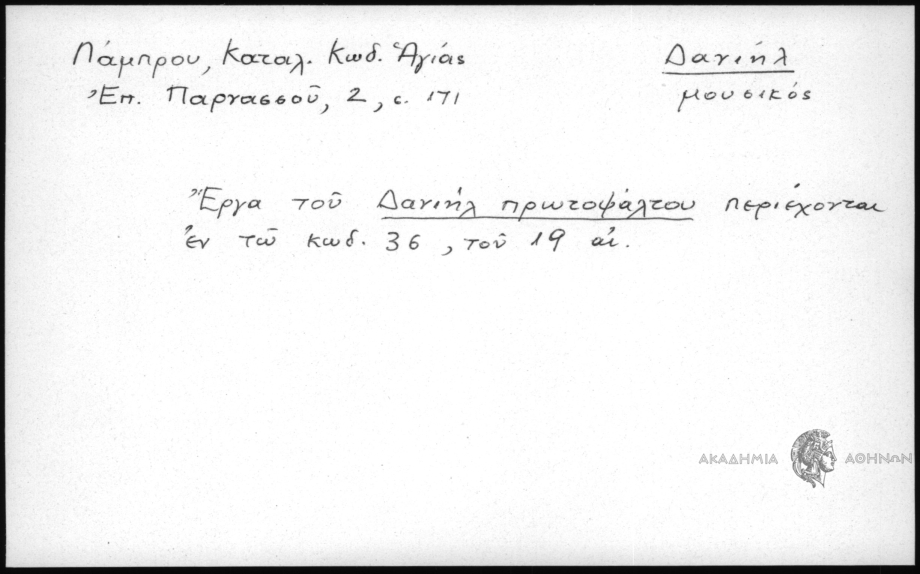 Λάμπρου, Καταλ. Κωδ. Ἁγιάς
Ἐπ. Παρνασσοῦ, 2, σ. 171
Δανιήλ
μουσικός
Ἔργα τοῦ Δανιήλ πρωτοψάλτου περιέχονται
ἐν τῶ κωδ. 36, τοῦ 19 αἰ.
ΑΚΑΔΗΜΙΑ ΑΘΗΝΩΝ